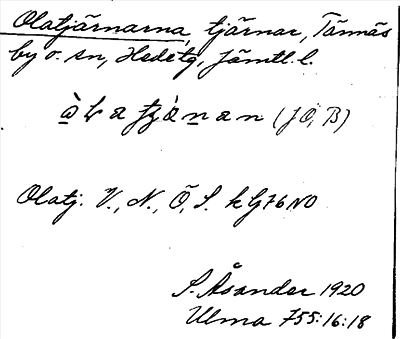 Olatjärnarna, tjärnar, Tännäs
by o. sn, Hede tg, Jämtl. l.
(JÖ, B)
Olatj. V., N., Ö, S. kG76NO
S. Åsander 1920
Ulma 755:16:18